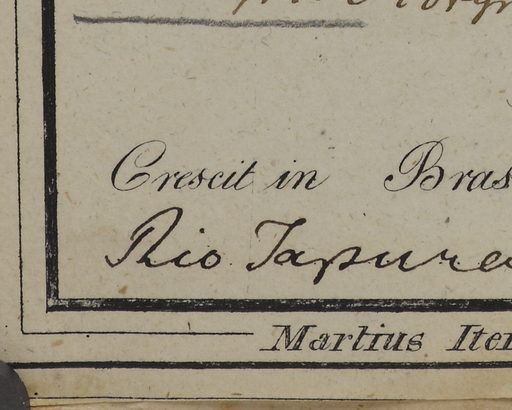 Crescit in Bras
Rio Japura
Martius Iter